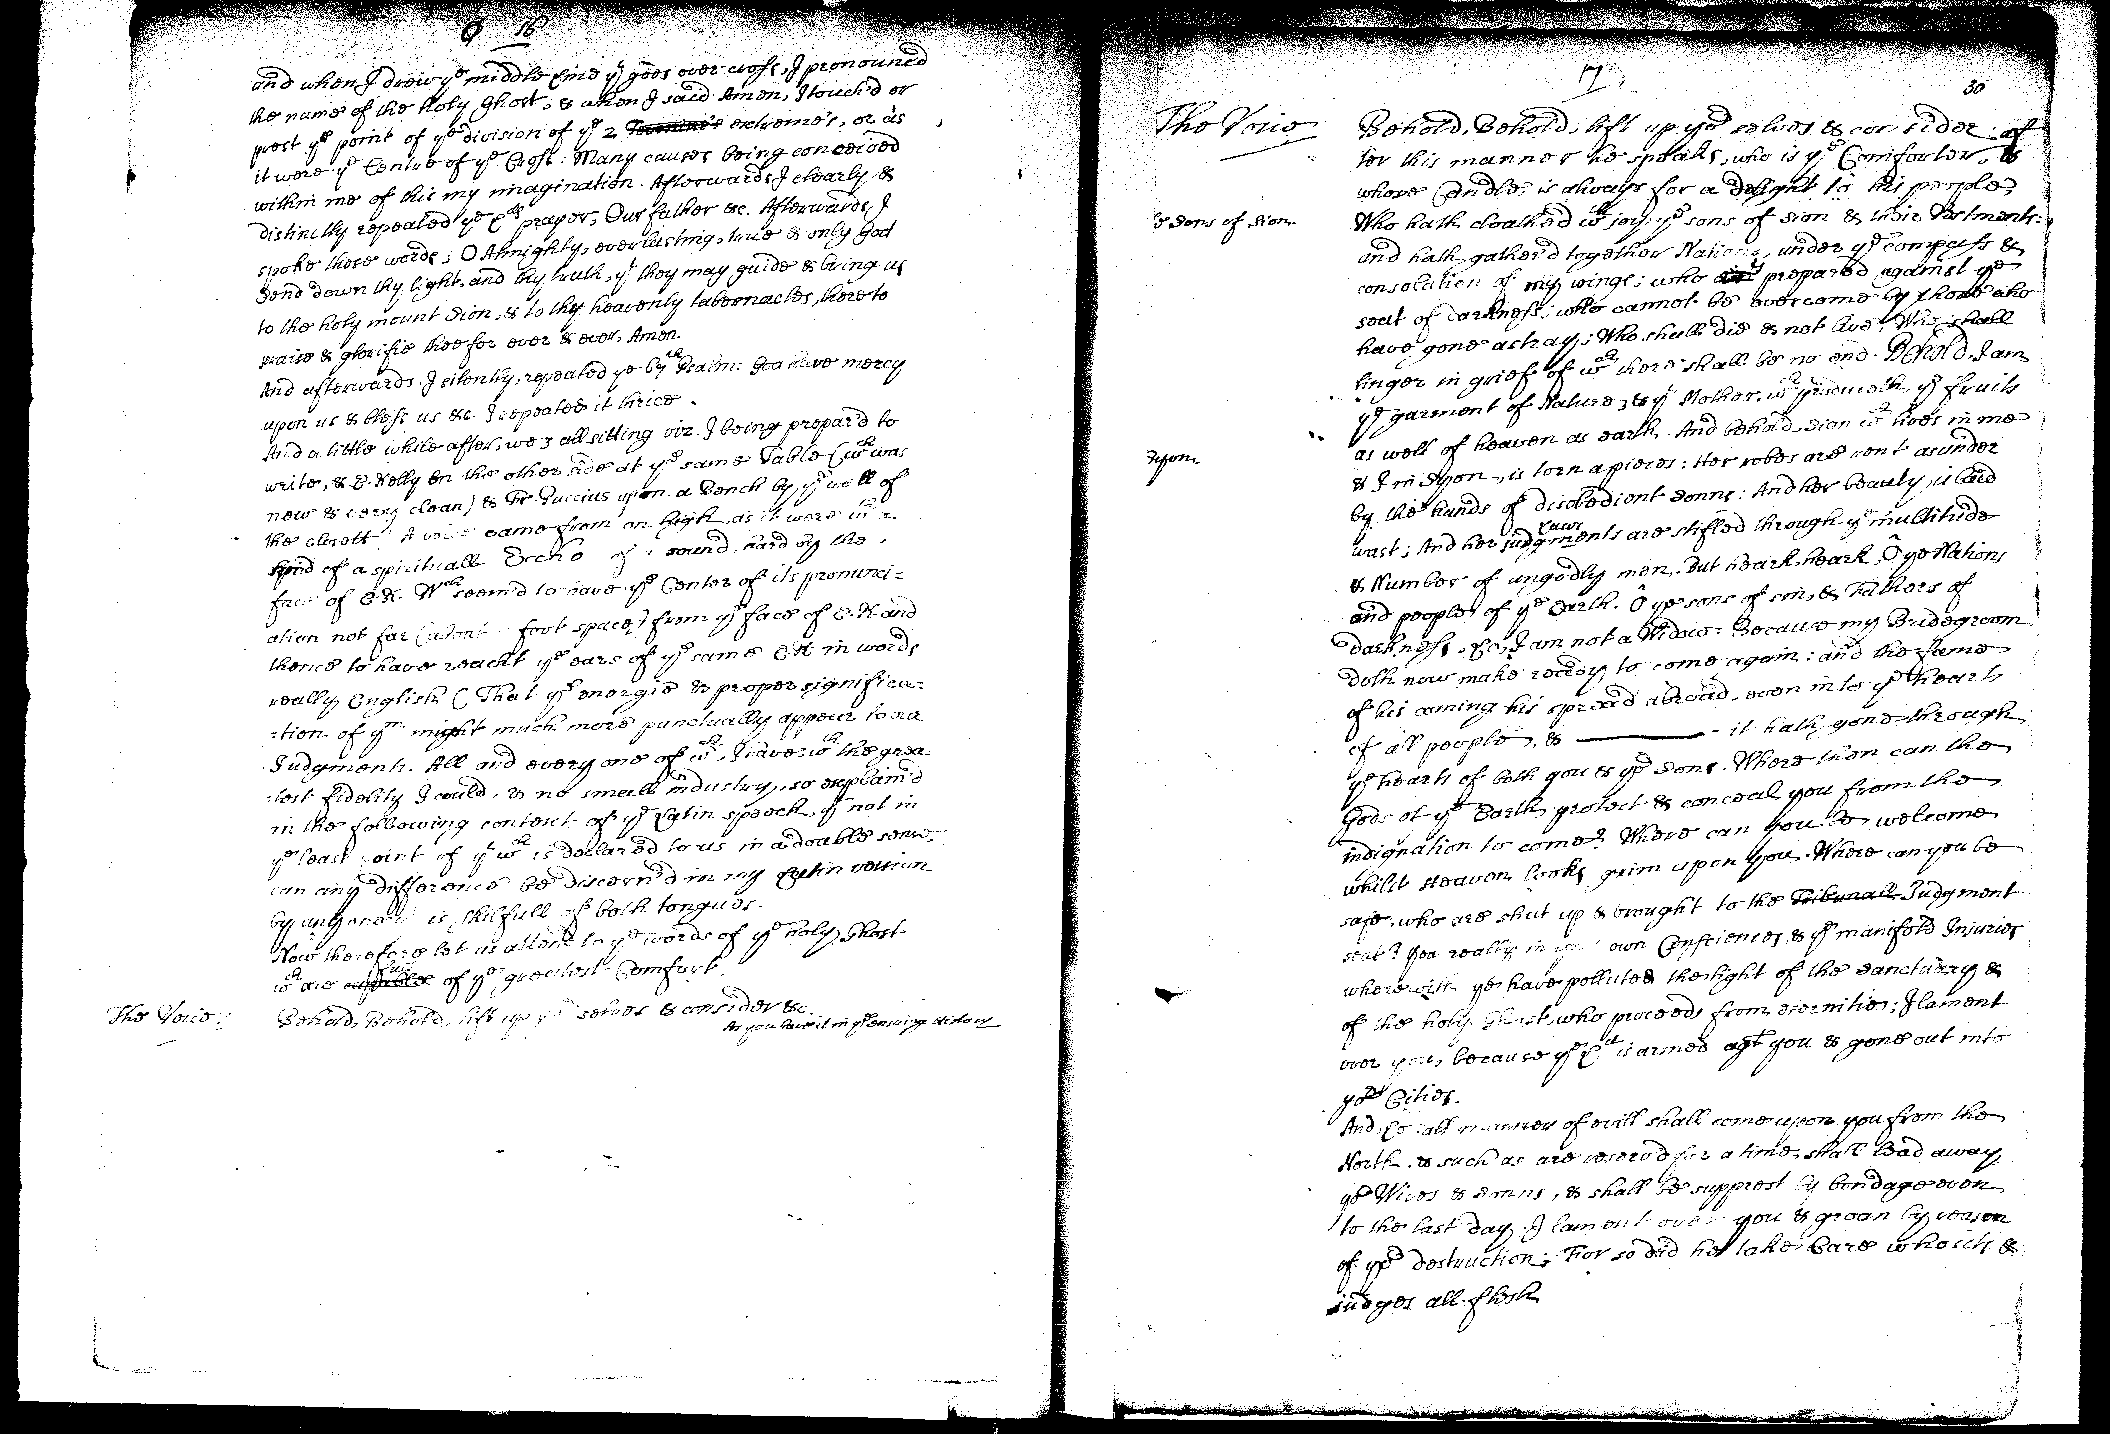 16
and when I drew ye middle Line yt goes over cross, I pronounc'd
the name of the Holy Ghost, & when I said Amen, I touch'd or
prest ye point of ye division of ye 2 extreme's, or as
it were ye Centre of ye Cross: Many causes being conceived
within me of this my imagination. Afterwards I clearly &
distinctly repeated ye Lds prayer, Our father &c. Afterwards I
spoke these words; O Almighty, everlasting, true & only God
send down thy light, and thy truth, yt they may guide & bring us
to the holy mount Sion, & to thy heavenly tabernacles, there to
praise & glorifie thee for ever & ever, Amen.
And afterwards I silently repeated ye 67th Psalm: God have mercy
upon us & bless us &c. I repeated it thrice.
And a little while after, we 3 all sitting viz. I being prepar'd to
write, & E. Kelly on the other side at ye same Table (wch was
new & very clean) & Fr. Puccius upon a Bench by ye wall of
the closett: A voice came from on high, as it were in a
kind of a spirituall Eccho of a sound, hard by the
face of E.K. Wch seem'd to have ye Center of its pronunci=
ation not far (about foot space) from ye face of E.K and
thence to have reacht ye ears of ye same E.K in words
really English (That ye energie & proper significa-
:tion of ym might much more punctually appear to our
Judgment. All and every one of wch, I have wth the grea-
:test fidelity I could, & no small industry, so explain'd
in the following context of ye Latin speech, yt not in
ye least point of yt wch is declared to us in a double sense
can any difference be discern'd in my Latin version
by any one is skilfull of both tongues.
Now therefore let us attend to ye words of ye Holy Ghost
wch are full of ye greatest Comfort.
The Voice: Behold, Behold, lift up yr selves & consider &c.
As you have it in ye ensuing history
17
30
The Voice Behold, Behold, lift up yor selves & consider; af
ter this manner he speaks, who is ye Comforter, &
whose Candle is always for a delight to his people,
ye Sons of Sion. Who hath cloathed wth joy ye sons of Sion & their Vestments:
and hath gather'd together Nations, under ye compass &
consolation of my wings; who prepared against ye
seat of darkness; who cannot be overcome by those who
have gone astray; Who shall die & not live, Who shall
linger in grief of wch there shall be no end. Behold, I am
ye garment of Nature; & ye Mother, wch ye fruits
as well of heaven as earth. And behold, Sion wch lives in me
Syon. & I in Syon, is torn apieces: Her robes are rent asunder
by the hands of disobedient Sonns: And her beauty is laid
wast; And her Laws judgments are stifled through ye multitude
& Number of ungodly men. But heark, heark, O ye Nations
and people of ye Earth. O ye sons of sin, & Fathers of
darkness. Lo, I am not a Widow: Because my Bridegroom
doth now make ready to come again: and the fame
of his coming his spread abroad, even into ye hearts
of all people, & ——— it hath gone through
ye hearts of both you & yor Sons. Where then can the
Gods of ye Earth protect & conceal you from the
indignation to come? Where can you be welcome
whilst Heaven looks grim upon you. Where can you be
safe, who are shut up & brought to the Tribunall Judgment
seat? Yea really in yor own Consciences, & ye manifold Injuries
where with ye have polluted the light of the Sanctuary &
of the holy Ghost, who proceeds from eternitie; I lament
over you, because ye Ld is armed agst you & gone out into
yor Cities.
And Lo all manner of evill shall come upon you from the
North. & such as are reserved for a time, shall lead away
yor Wives & Sonns, & shall be supprest by bondage even
to the last day. I lament over you & groan by reason
of yor destruction; For so did he take Care who sits &
judges all flesh